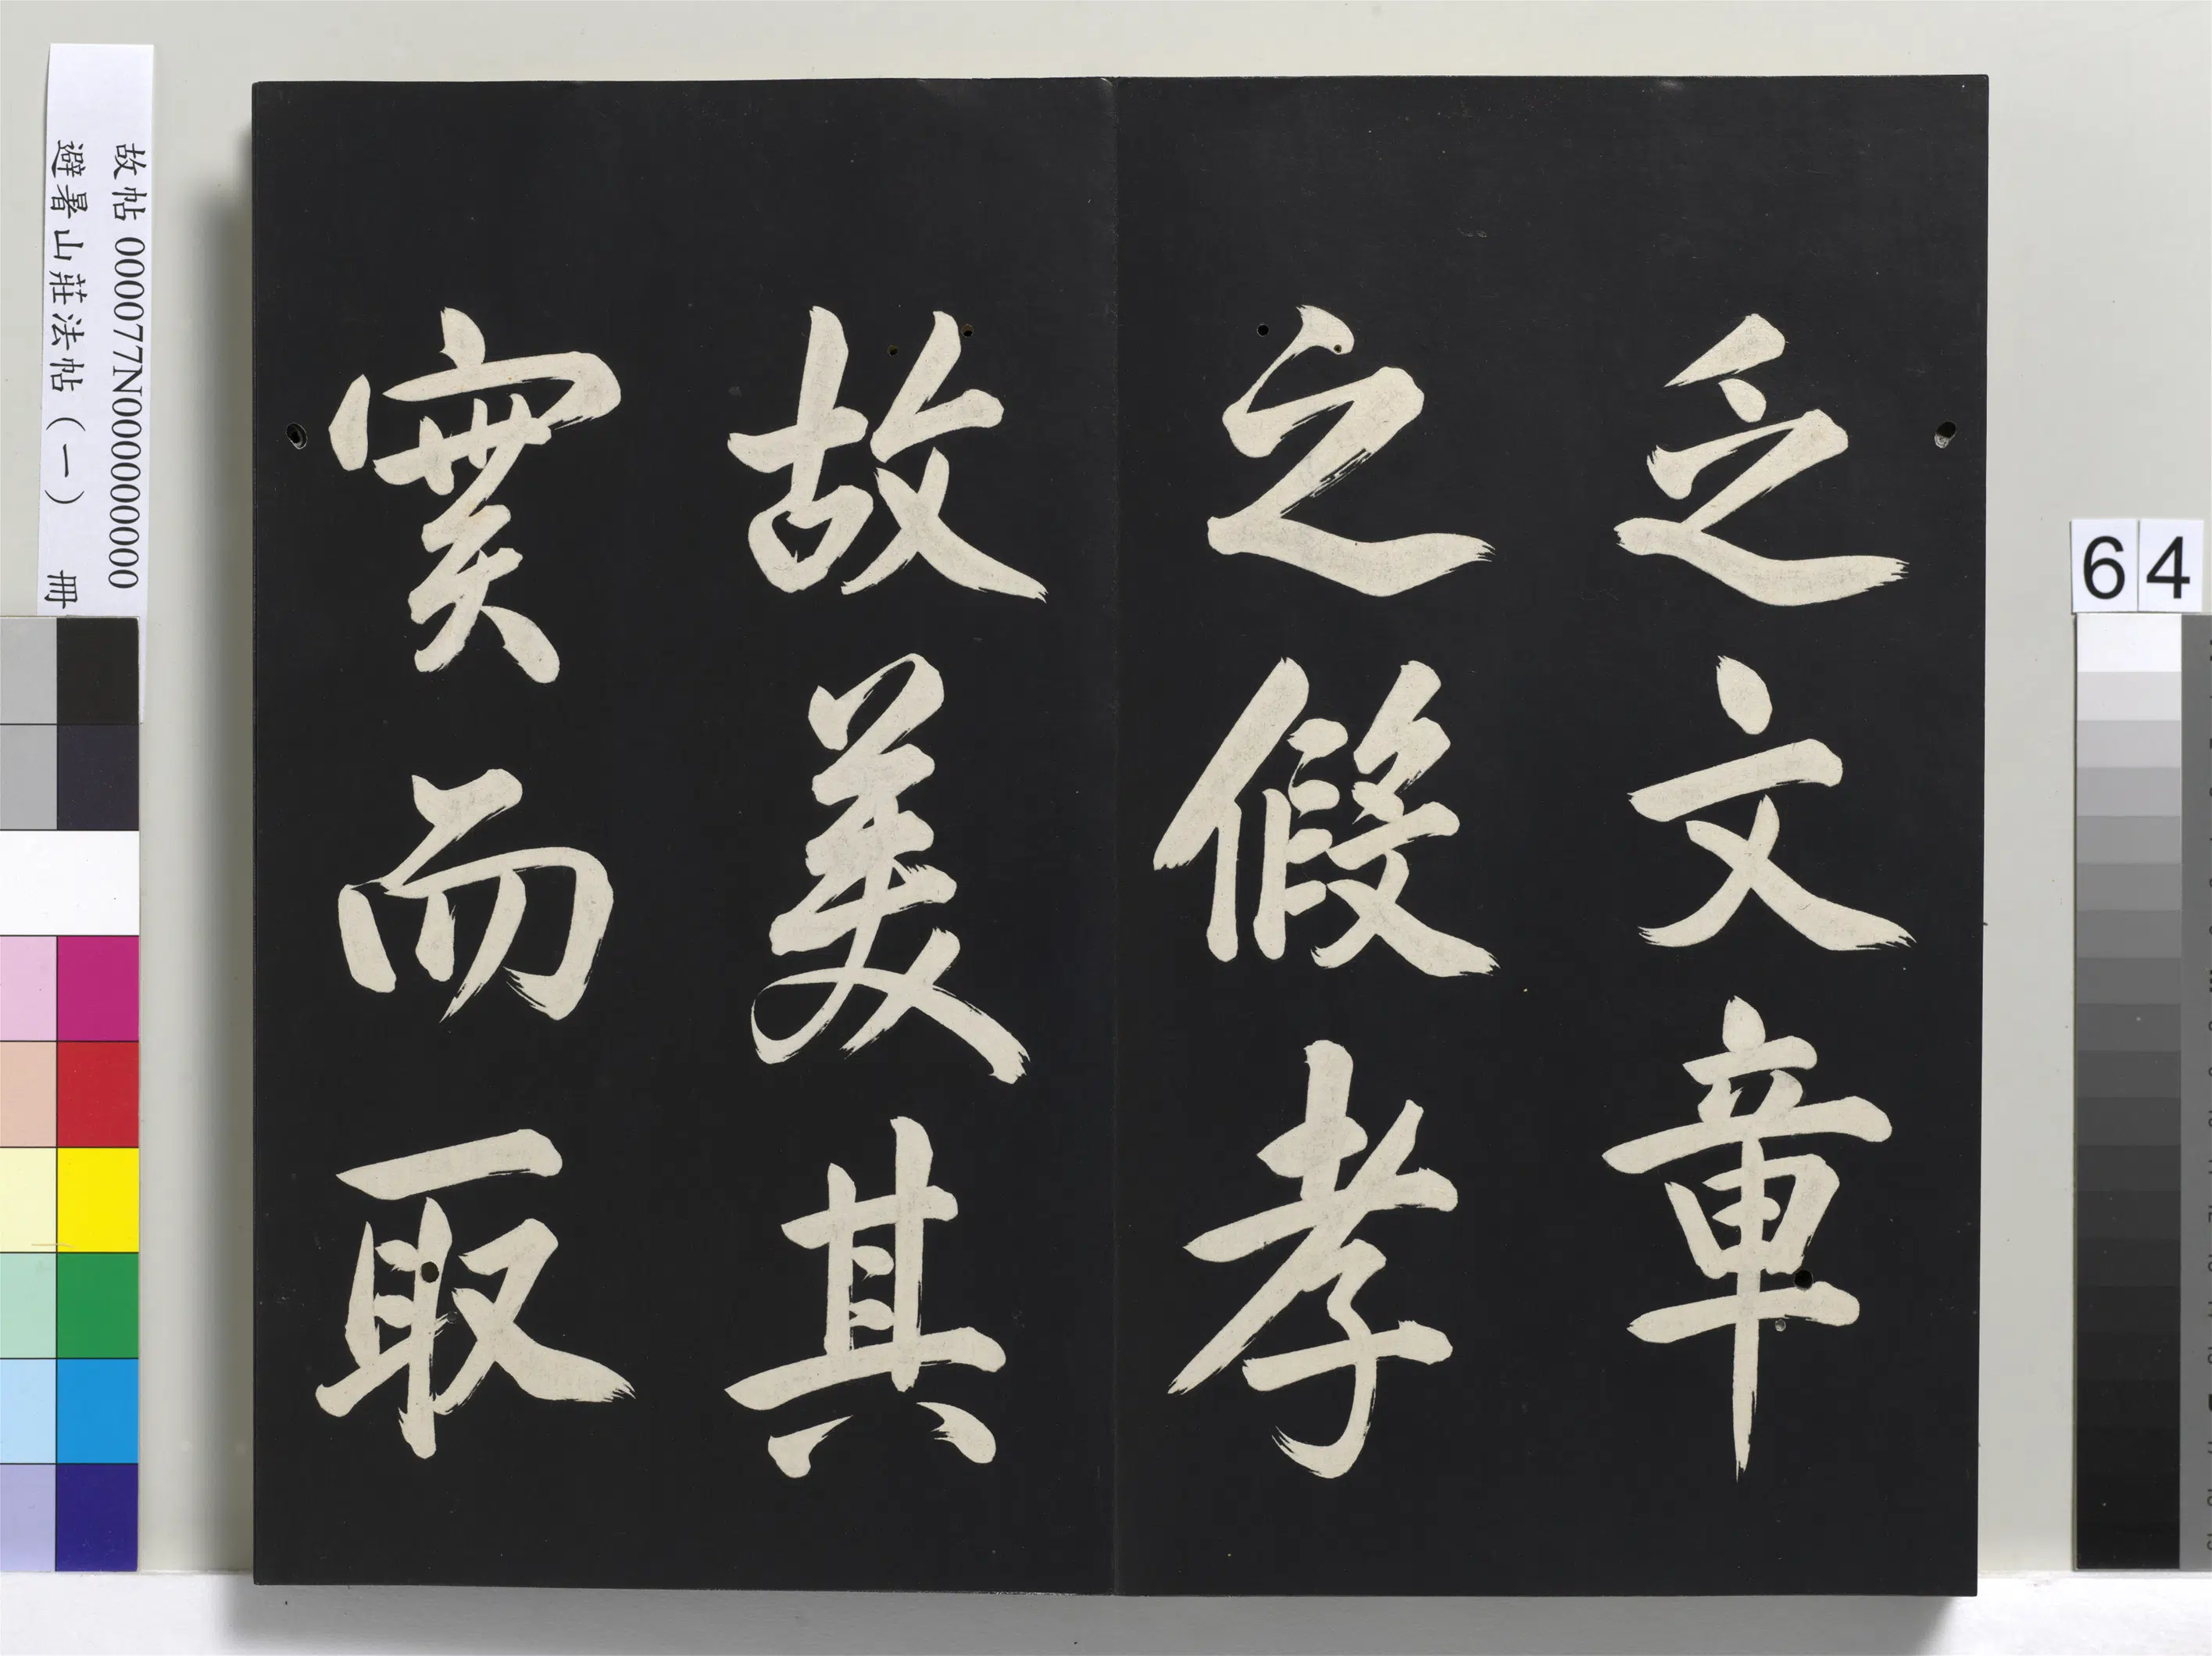 乏文章
之假孝
故美其
實而取
故帖 000077N000000000
避暑山莊法帖（一） 冊
64